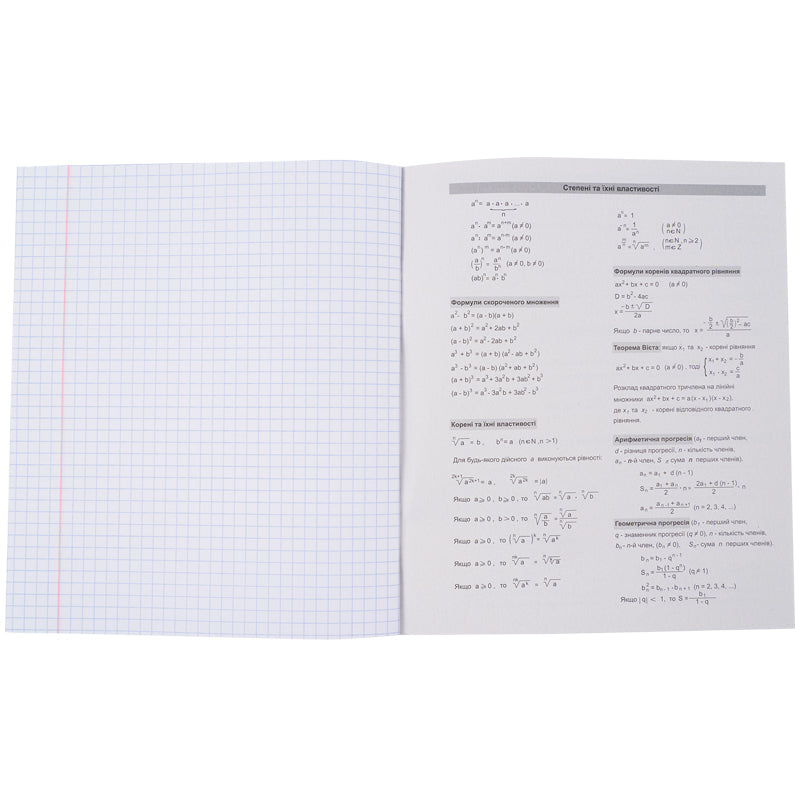 Степені та їхні властивості
aⁿ = a · a · a · ... · a
n
aⁿ · aᵐ = aⁿ⁺ᵐ (a ≠ 0)
aⁿ : aᵐ = aⁿ⁻ᵐ (a ≠ 0)
(aⁿ)ᵐ = aⁿ·ᵐ (a ≠ 0)
(a/b)ⁿ = aⁿ/bⁿ (a ≠ 0, b ≠ 0)
(ab)ⁿ = aⁿ · bⁿ
Формули скороченого множення
a² - b² = (a - b)(a + b)
(a + b)² = a² + 2ab + b²
(a - b)² = a² - 2ab + b²
a³ + b³ = (a + b) (a² - ab + b²)
a³ - b³ = (a - b) (a² + ab + b²)
(a + b)³ = a³ + 3a²b + 3ab² + b³
(a - b)³ = a³ - 3a²b + 3ab² - b³
Корені та їхні властивості
ⁿ√a = b , bⁿ = a (n∈N , n > 1)
Для будь-якого дійсного a виконуються рівності:
²ᵏ⁺¹√a²ᵏ⁺¹ = a , ²ᵏ√a²ᵏ = |a|
Якщо a ⩾ 0 , b ⩾ 0 , то ⁿ√ab = ⁿ√a · ⁿ√b
Якщо a ⩾ 0 , b > 0 , то ⁿ√(a/b) = ⁿ√a / ⁿ√b
Якщо a ⩾ 0 , то (ⁿ√a)ᵏ = ⁿ√aᵏ
Якщо a ⩾ 0 , то ⁿᵏ√a = ⁿ√ᵏ√a
Якщо a ⩾ 0 , то ⁿᵏ√aᵏ = ⁿ√a
= 1
a⁻ⁿ = 1/aⁿ (a ≠ 0 n∈N)
= ⁿ√aᵐ , (n∈N , n ⩾ 2 m∈Z)
Формули коренів квадратного рівняння
ax² + bx + c = 0 (a ≠ 0)
D = b² - 4ac
x = (-b ± √D)/2a
Якщо b - парне число, то x = (-b/2 ± √((b/2)² - ac))/a
Теорема Вієта якщо x₁ та x₂ - корені рівняння
ax² + bx + c = 0 (a ≠ 0) , тоді { x₁ + x₂ = - b/a
x₁ · x₂ = c/a
Розклад квадратного тричлена на лінійні
множники ax² + bx + c = a (x - x₁)(x - x₂),
де x₁ та x₂ - корені відповідного квадратного
рівняння.
Арифметична прогресія (a₁ - перший член,
d - різниця прогресії, n - кількість членів,
aₙ - n-й член, S ₙ сума n перших членів).
aₙ = a₁ + d (n - 1)
Sₙ = (a₁ + aₙ)/2 · n = (2a₁ + d (n - 1))/2 · n
aₙ = (aₙ₋₁ + aₙ₊₁)/2 (n = 2, 3, 4, ...)
Геометрична прогресія (b₁ - перший член,
q - знаменник прогресії (q ≠ 0), n - кількість членів,
bₙ - n-й член, (bₙ ≠ 0), Sₙ - сума n перших членів).
bₙ = b₁ · qⁿ⁻¹
Sₙ = b₁(1 - qⁿ)/(1 - q) (q ≠ 1)
bₙ² = bₙ₋₁ · bₙ₊₁ (n = 2, 3, 4, ...)
Якщо |q| < 1, то S = b₁/(1 - q)